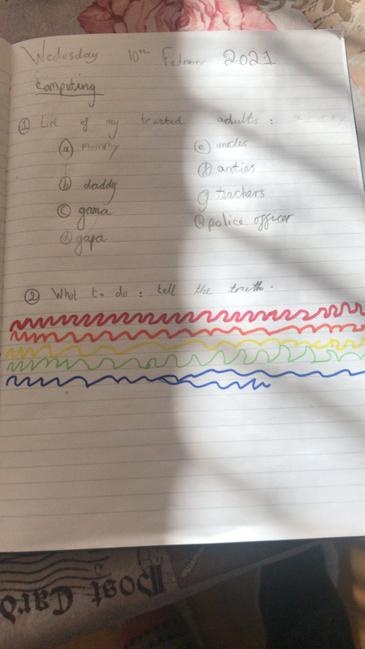 Wedesday 10th 2021
Computing
① List of my trusted adults:
ⓐ mummy
ⓑ daddy
ⓒ gama
ⓓ gapa
ⓔ uncles
ⓕ anties
g teachers
ⓗ police officer
② What to do: tell the truth.
Post Card